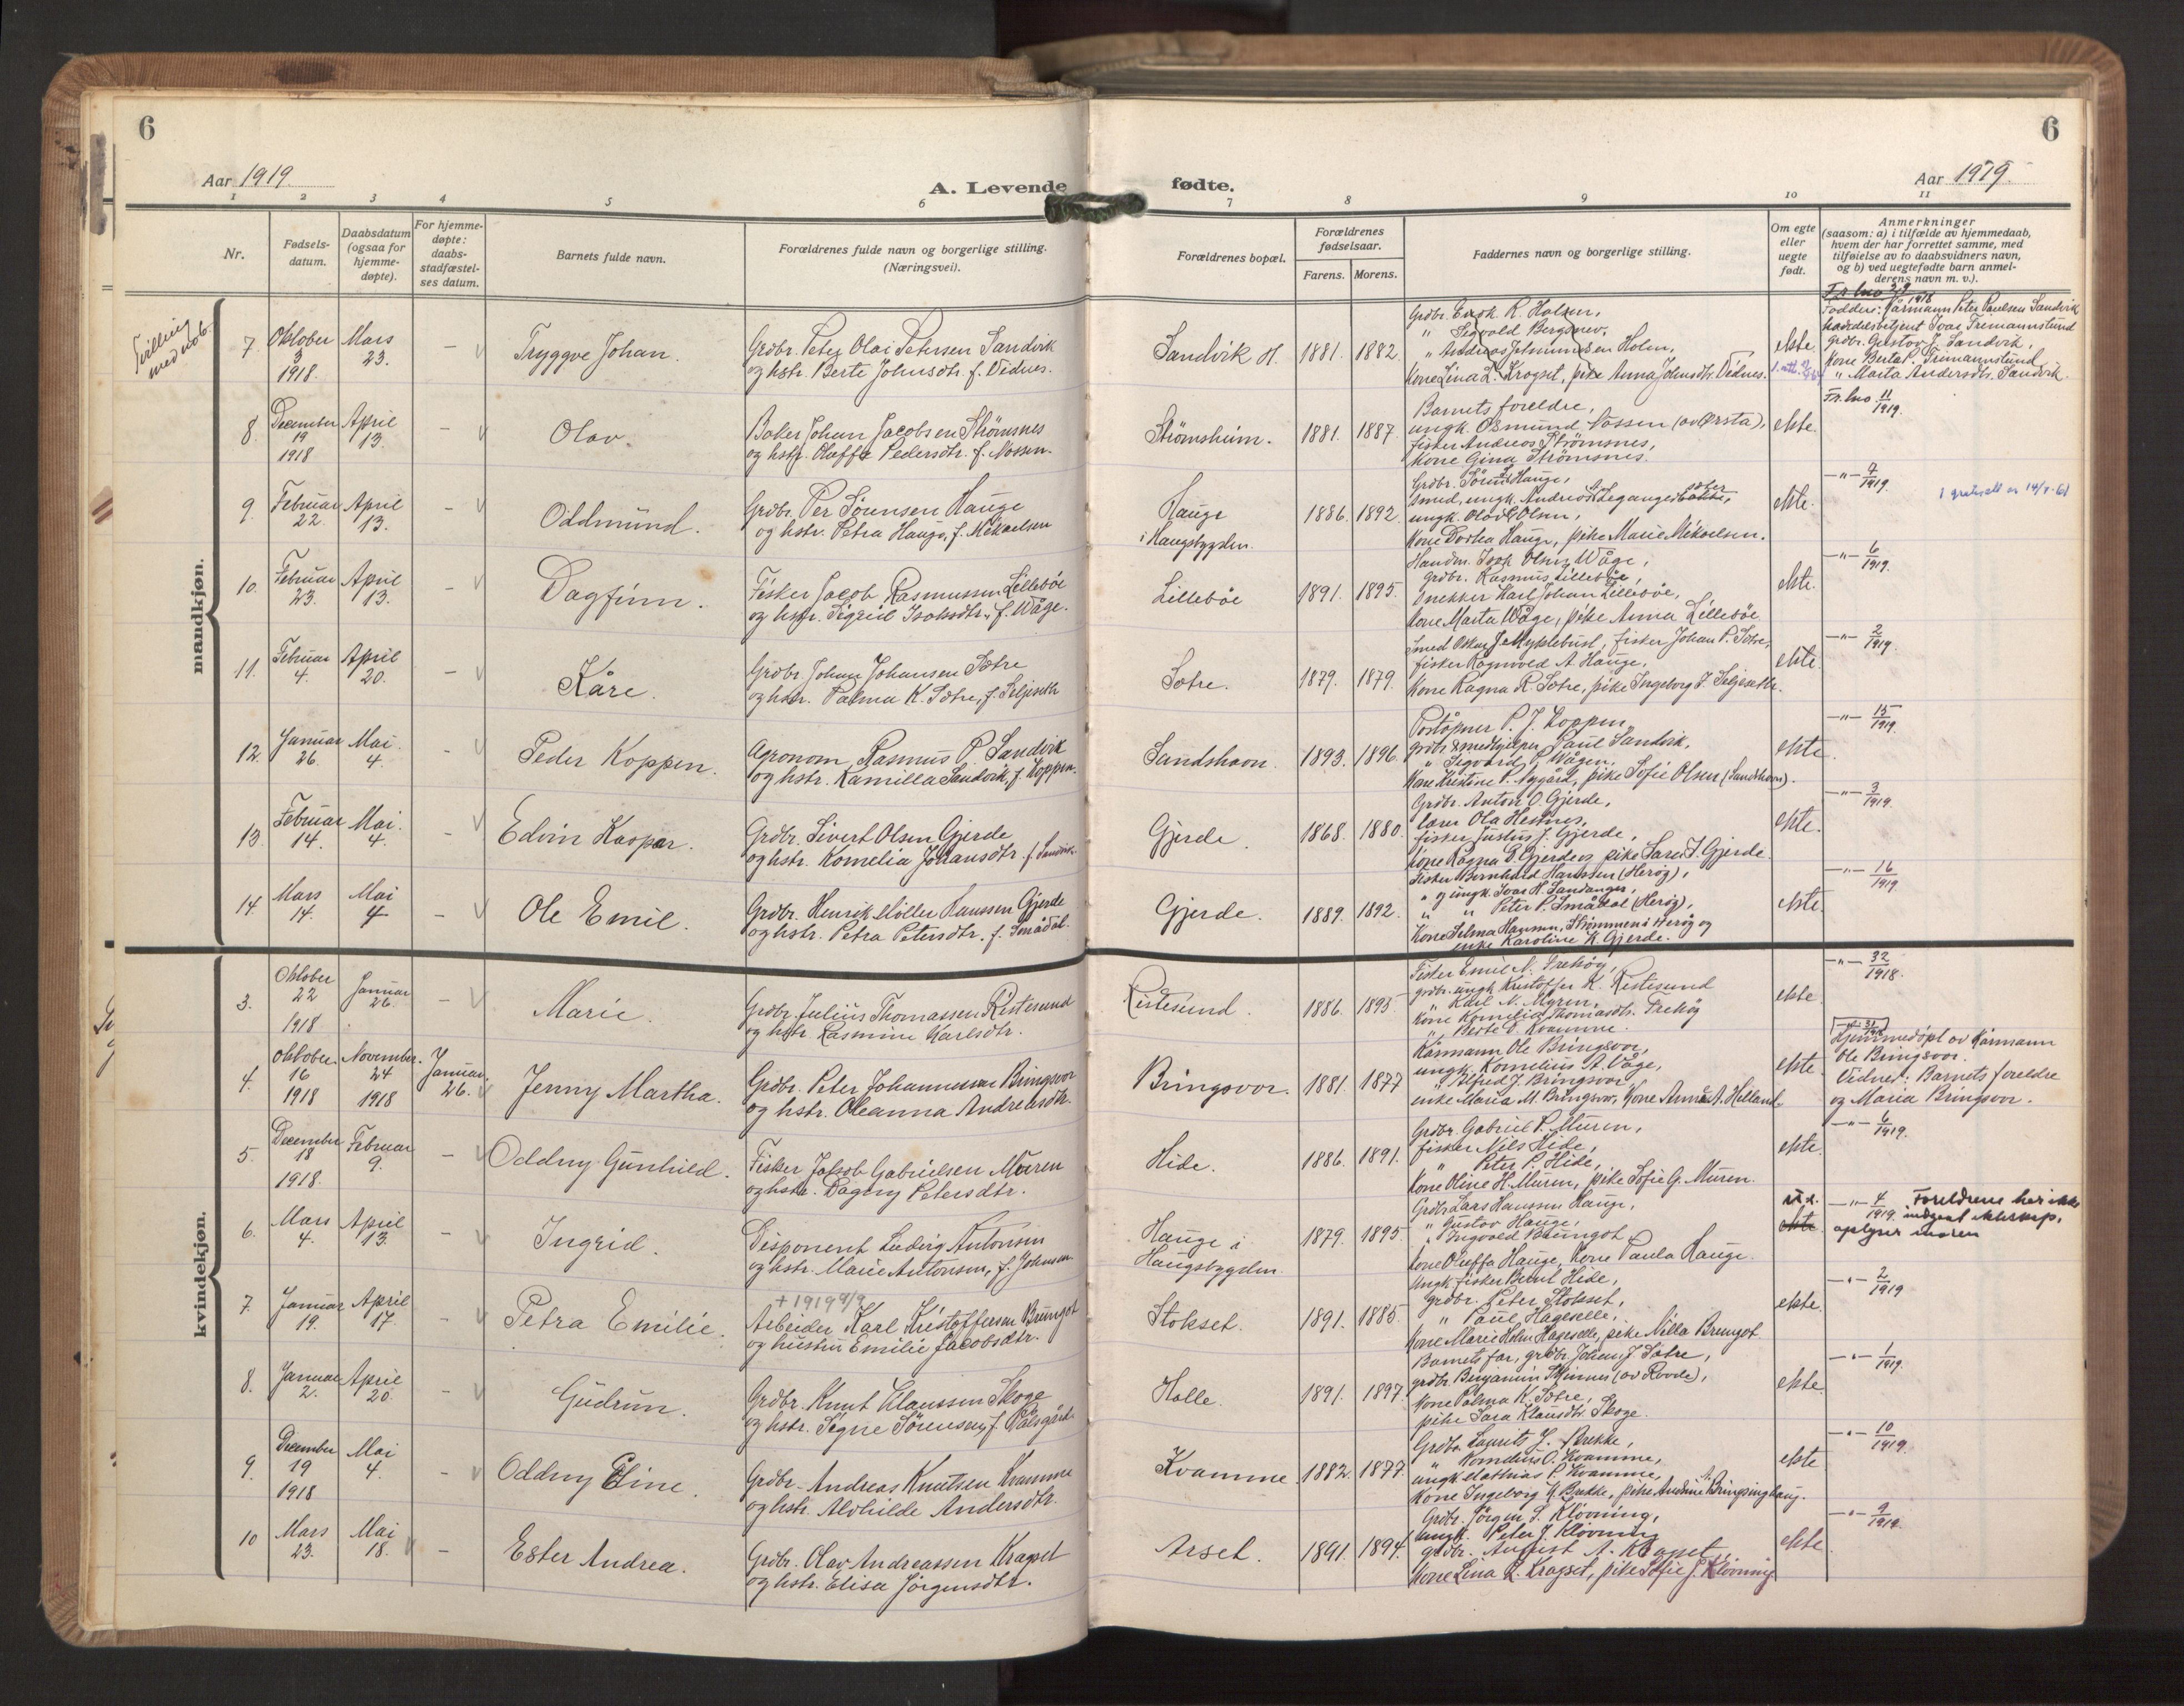 6
6
Aar 1919.
A. Levende fødte.
Aar 1919.
1 2 3 4 5 6 7 8 9 10 11
Nr.
Fødsels-
datum.
Daabsdatum
(ogsaa for
hjemme-
døpte).
For hjemme-
døpte:
daabs-
stadfæstel-
ses datum.
Barnets fulde navn.
Forældrenes fulde navn og borgerlige stilling.
(Næringsvei).
Forældrenes bopæl.
Forældrenes
fødselsaar.
Farens. Morens.
Faddernes navn og borgerlige stilling.
Om egte
eller
uegte
født.
Anmerkninger
(saasom: a) i tilfælde av hjemmedaab,
hvem der har forrettet samme, med
tilføielse av to daabsvidners navn,
og b) ved uegtefødte barn anmel-
derens navn m. v.).
mandkjøn.
Tvilling
med no 6.
7. Oktober 3 1918. Mars 23. – Tryggve Johan.
Grdbr. Peter Olai Petersen Sandvik
og hstr. Berte Johnsdtr. f. Vidnes.
Sandvik H. 1881. 1882.
Grdbr. Enok R. Holsen,
" Sigvald Bergsnev,
" Andreas Holm,
Kone Lina L. Krogset, pike Anna Johnsdtr. Vidnes.
ekte.
Faddere: Kårmann Peter Paulsen Sandvik
Ivar Fremannslund
grdbr. Gustav J. Sandvik,
Kone Berta P. Fremannslund
" Marta Andersdtr. Sandvik.
8. December 19 1918 April 13. – Olav.
Baker Johan Jacobsen Strømsnes
og hstr. Oluffa Pedersdtr. f. Nossen.
Strømsheim. 1881. 1887.
Barnets foreldre,
ungk. Osmund Nossen (av Ørsta),
fisker Andreas Strømsnes,
Kone Gina Strømsnes.
ekte.
Fr. lno 11/1919.
9. Februar 22. April 13. – Oddmund.
Grdbr. Per Sørensen Hauge
og hstr. Petra Hauge, f. Mikaelsen
Hauge
i Haugsbygden.
1886. 1892.
Grdbr. Søren Hauge,
smed, ungk. Andreas Leganger
ungk. Olai Olsen,
Kone Dorthea Hauge, pike Marie Mikaelsen.
ekte.
–"– 9/1919.
10. Februar 23. April 13. – Dagfinn.
Fisker Jacob Rasmussen Lillebøe
og hstr. Sigrid Isaksdtr. f. Wåge.
Lillebøe 1891. 1895.
Handm. Isak Olsen Wåge,
grdbr. Rasmus Lillebøe,
snekker Karl Johan Lillebøe,
Kone Marta Wåge, pike Anna Lillebøe
ekte.
–"– 6/1919.
11. Februar 4. April 20. – Kåre.
Grdbr. Johan Johansen Sætre
og hstr. Palma K. Sætre, f. Seljeseth
Sætre. 1879. 1879.
Smed Oskar J. Myklebust, fisker Johan P. Sætre,
fisker Ragnvald A. Hauge,
Kone Ragna R. Sætre, pike Ingeborg J. Seljeseth.
ekte.
–"– 2/1919.
12. Januar 26. Mai 4. – Peder Koppen.
Agronom Rasmus P. Sandvik
og hstr. Kamilla Sandvik, f. Koppen.
Sandshavn. 1893. 1896.
Poståpner P. J. Koppen,
grdbr. & medhjelper Paul Sandvik,
" Sigvard P. Wågen,
Kone Kristine P. Nygård, pike Sofie Olsen (Sandshavn).
ekte.
–"– 15/1919.
13. Februar 14. Mai 4. – Edvin Kaspar.
Grdbr. Sivert Olsen Gjerde
og hstr. Kornelia Johansdtr. f. Sandvik.
Gjerde. 1868. 1880.
Grdbr. Anton O. Gjerde,
lærer Ola Hestnes,
fisker Justus J. Gjerde,
Kone Ragna O. Gjerde og pike Sara J. Gjerde.
ekte.
–"– 3/1919.
14. Mars 14. Mai 4 – Ole Emil.
Grdbr. Henrik Møller Hanssen Gjerde
og hstr. Petra Petersdtr. f. Smådal.
Gjerde. 1889. 1892.
Fisker Bernhard Hanssen (Herøy),
" og ungk. Ivar H. Sandanger,
" " Peter P. Smådal (Herøy),
Kone Selma Hansen, Strømmen i Herøy og
enke Karoline K. Gjerde.
ekte.
–"– 16/1919
kvindekjøn.
3. Oktober 22 1918 Januar 26. – Marie.
Grdbr. Julius Thomassen Ristesund
og hstr. Rasmine Karlsdtr.
Ristesund. 1886. 1895.
Fisker Emil N. Frekøy,
grdbr. ungk. Kristoffer K. Ristesund
" Karl N. Myren,
Kone Kornelia Thomasdtr. Frekøy
" Berte O. Kvamme.
ekte.
–"– 32/1918.
4. Oktober 16 1918 November 24 1918 Januar 26. Jenny Martha.
Grdbr. Peter Johannessen Bringsvor
og hstr. Oleanna Andreasdtr.
Bringsvor. 1881. 1877
Kårmann Ole Bringsvor,
ungk. Kornelius A. Våge,
" Alfred J. Bringsvor
enke Maria M. Bringsvor, Kone Anna A. Hilland.
ekte.
Hjemmedøpt av Kårmann
Ole Bringsvor.
Vidner: Barnets foreldre
og Maria Bringsvor.
5. December 18 1918. Februar 9. – Oddny Gunhild.
Fisker Jakob Gabrielsen Muren
og hstr. Dagny Petersdtr.
Hide. 1886. 1891.
Grdbr. Gabriel P. Muren,
fisker Nils Hide,
" Peter P. Hide,
Kone Oline H. Muren, pike Sofie G. Muren.
ekte.
–"– 6/1919.
6. Mars 4. April 13. – Ingrid.
Disponent Ludvig Antonsen
og hstr. Marie Antonsen, f. Johnsen
Hauge i
Haugsbygden.
1879. 1895.
Grdbr. Lars Hanssen Hauge,
" Gustav Hauge,
" Ingvald Brungot,
Kone Oluffa Hauge, Kone Paula Hauge.
u.e.
ekte.
–"– 4/1919. Foreldrene har ikke
indgaat ekteskap,
oplyser moren
7. Januar 19. April 17. – Petra Emilie.
+ 1919 4/9
Arbeider Karl Kristoffersen Brungot
og hustru Emilie Jacobsdtr.
Stokset. 1891. 1885.
Ungk. fisker Bernt Hide,
grdbr. Peter Stokset,
" Paul Hageselle,
Kone Marie Holm Hageselle, pike Nilla Brungot
ekte.
–"– 2/1919
8. Januar 2. April 20. – Gudrun.
Grdbr. Knut Klaussen Skoge
og hstr. Signe Sørensen, f. Pålsgård.
Holle. 1891. 1897.
Barnets far, grdbr. Johan J. Sætre,
grdbr. Benjamin Skinnes (av Rovde),
Kone Palma K. Sætre,
pike Sara Klausdtr. Skoge.
ekte.
–"– 1/1919.
9. December 19 1918 Mai 4. – Oddny Eline.
Grdbr. Andreas Knutsen Kvamme
og hstr. Alvhilde Andersdtr.
Kvamme. 1882. 1877.
Grdbr. Laurits J. Brekke,
" Kornelius O. Kvamme,
ungk. Mathias P. Kvamme,
Kone Ingeborg M. Brekke, pike Andrine A. Bringsinghaug.
ekte
–"– 10/1919.
10 Mars 23. Mai 18. – Ester Andrea.
Grdbr. Olav Andreassen Kragset
og hstr. Elisa Jørgensdtr.
Arset. 1891. 1894.
Grdbr. Jørgen S. Kløvning,
ungk. Peter J. Kløvning
grdbr. August A. Kragset,
Kone Lina R. Kragset, pike Sofie J. Kløvning.
ekte.
–"– 9/1919.